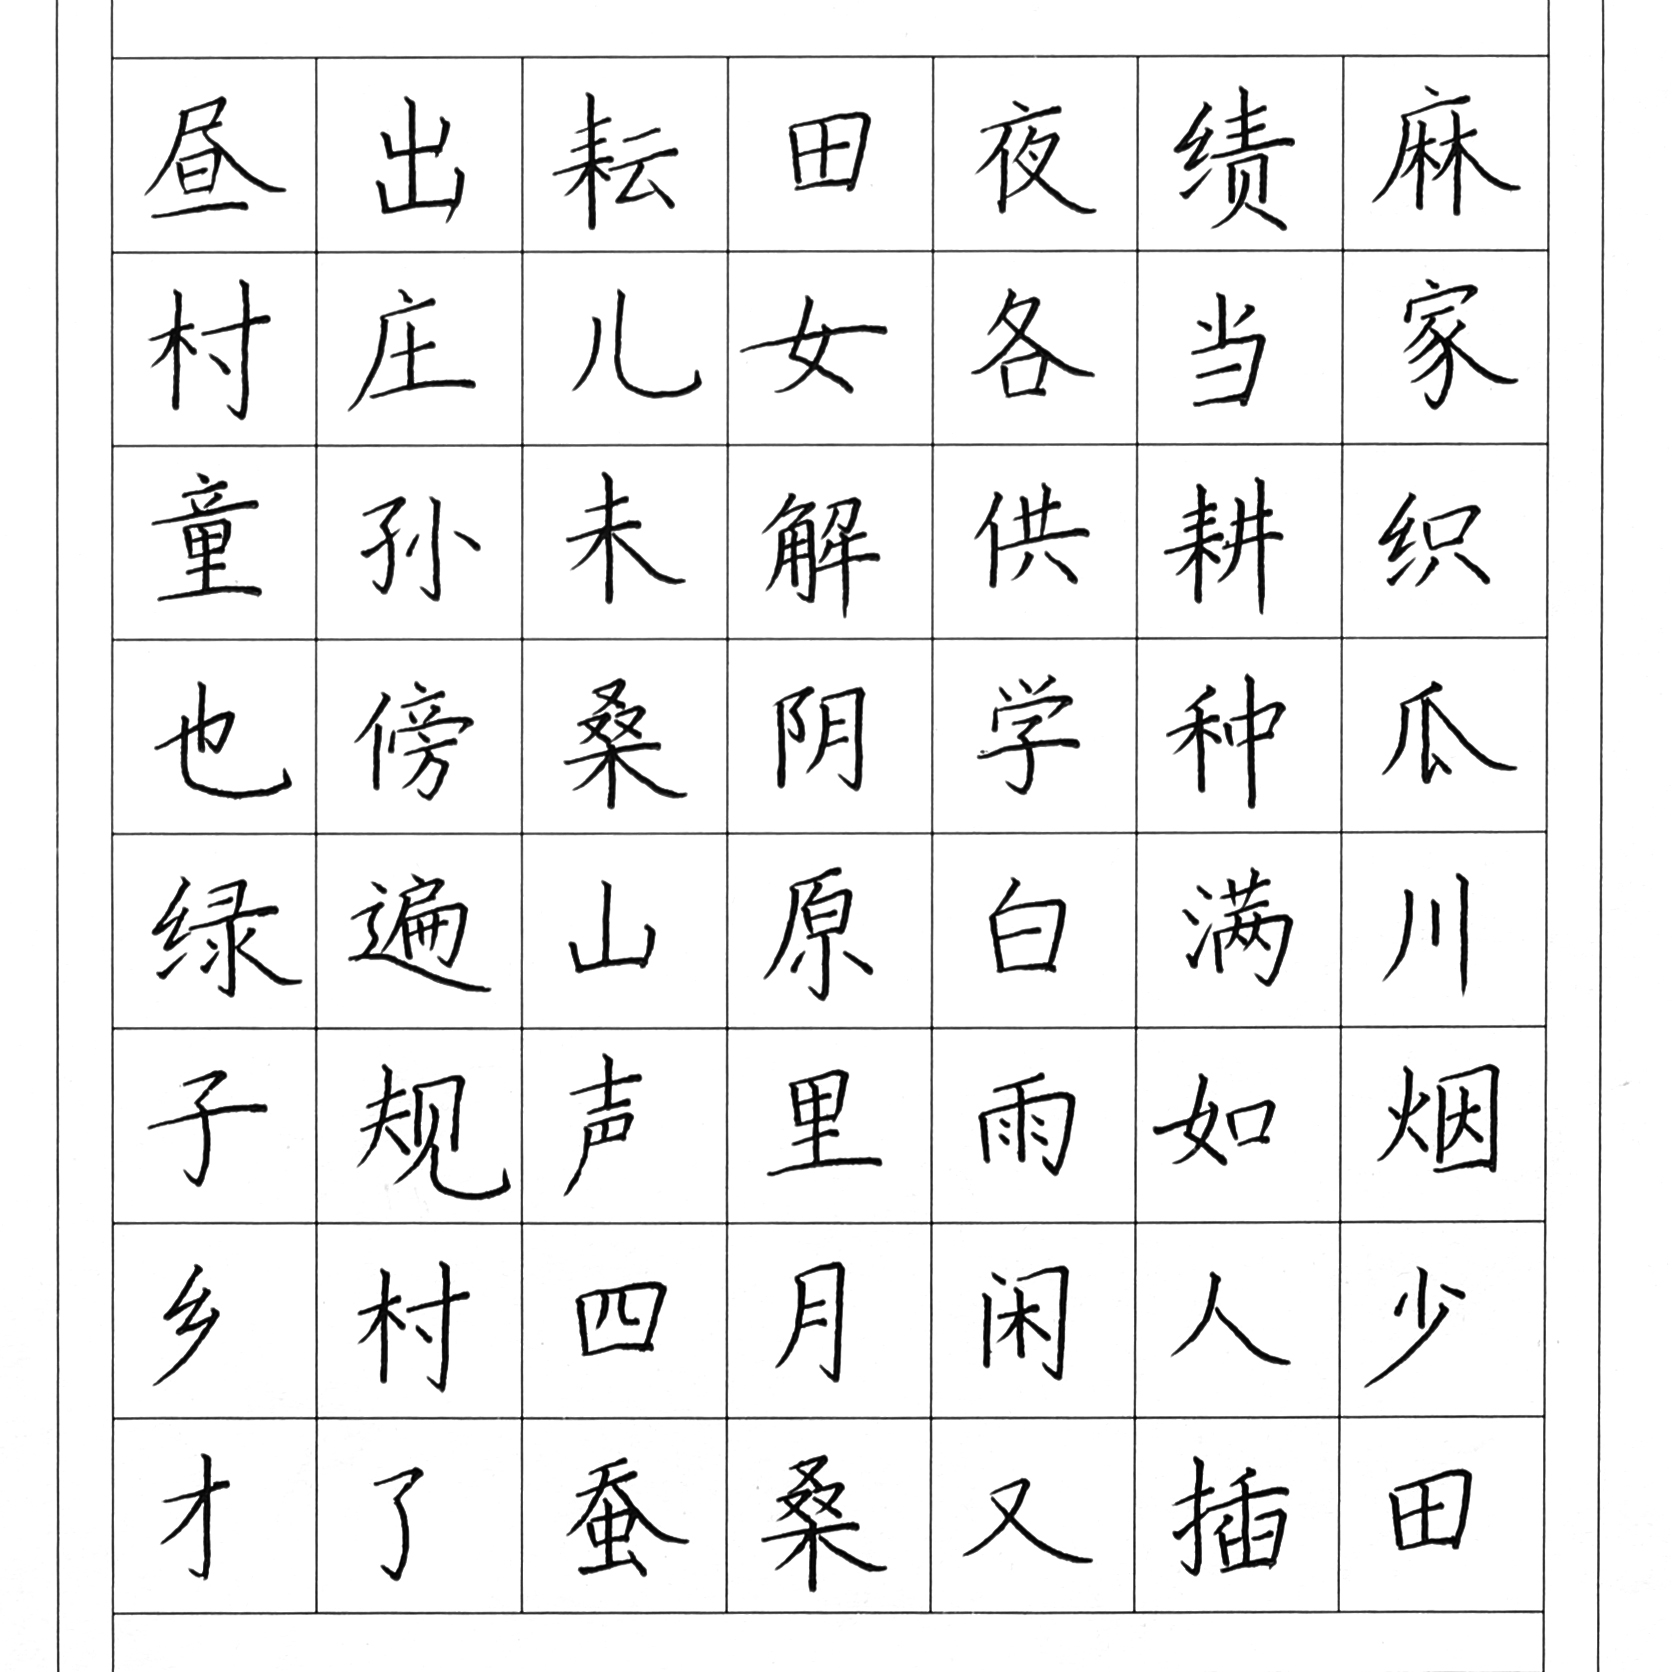 昼出耘田夜绩麻
村庄儿女各当家
童孙未解供耕织
也傍桑阴学种瓜
绿遍山原白满川
子规声里雨如烟
乡村四月闲人少
才了蚕桑又插田